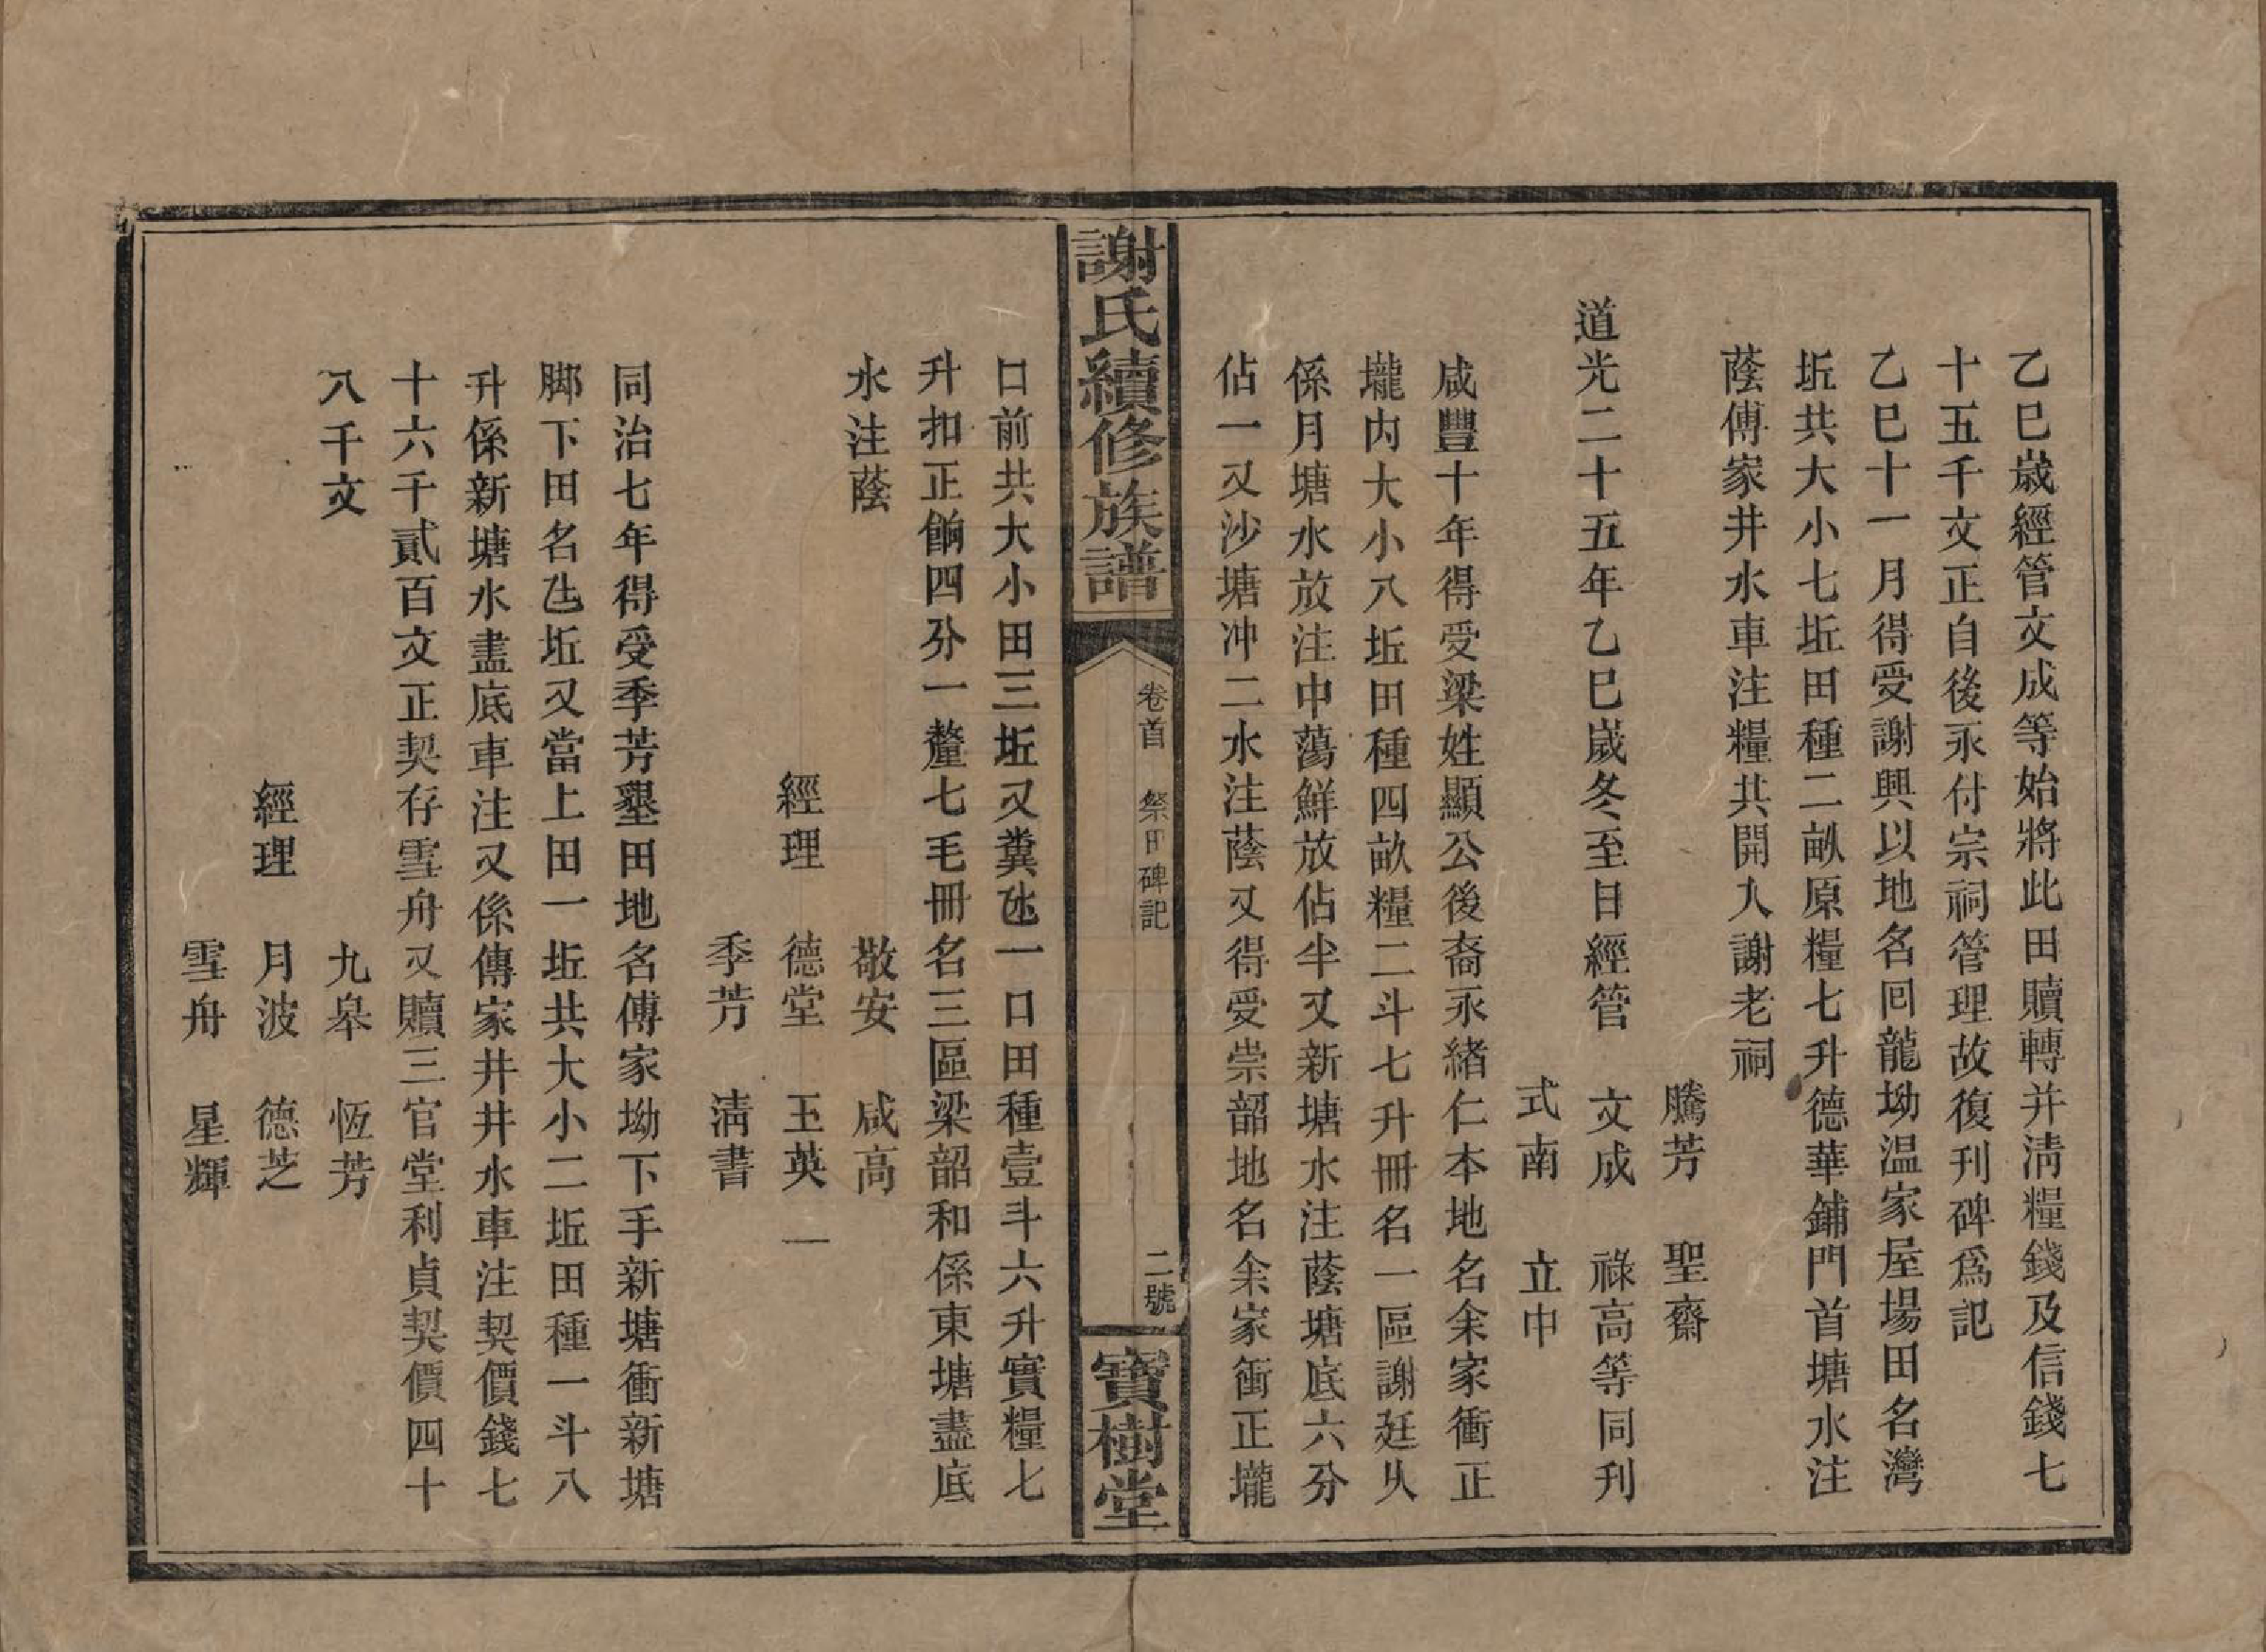 乙巳歲經管文成等始將此田贖轉并淸糧錢及信錢七
十五千文正自後永付宗祠管理故復刊碑爲記
乙巳十一月得受謝興以地名囘龍坳温家屋場田名灣
坵共大小七坵田種二畝原糧七升德華鋪門首塘水注
蔭傅家井水車注糧共開入謝老祠
騰芳 聖齋
道光二十五年乙巳歲冬至日經管 文成 祿高等同刊
式南 立中
咸豐十年得受梁姓顯公後裔永緒仁本地名余家衝正
壠內大小八坵田種四畝糧二斗七升冊名一區謝廷从
係月塘水放注中蕩鮮放佔半又新塘水注蔭塘底六分
佔一又沙塘冲二水注蔭又得受崇韶地名余家衝正壠
謝氏續修族譜
卷首 祭田碑記
二號
寶樹堂
口前共大小田三坵又糞氹一口田種壹斗六升實糧七
升扣正餉四分一釐七毛冊名三區梁韶和係東塘盡底
水注蔭
敬安 咸高
經理 德堂 玉英一
季芳 淸書
同治七年得受季芳墾田地名傅家坳下手新塘衝新塘
脚下田名氹坵又當上田一坵共大小二坵田種一斗八
升係新塘水盡底車注又係傅家井井水車注契價錢七
十六千貳百文正契存雪舟又贖三官堂利貞契價四十
八千文
九皋 恆芳
經理 月波 德芝
雪舟 星輝